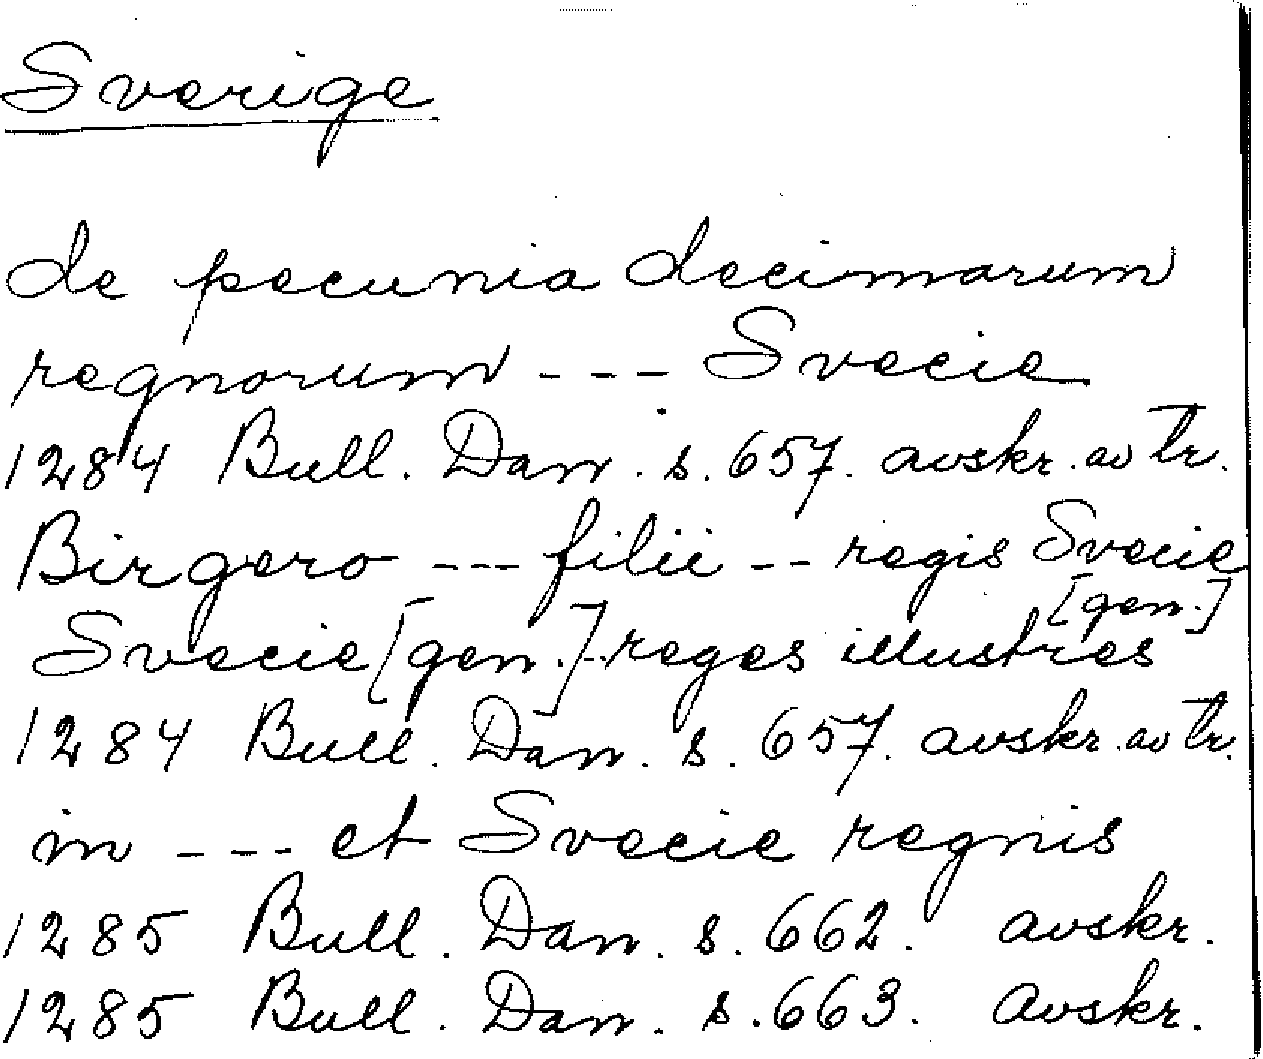 Sverige
de pecunia decimarum
regnorum --- Svecie
1284 Bull. Dan. s. 657. avskr. av tr.
Birgero --- filii -- regis Svecie
[gen.]
Svecie [gen.] -- reges illustres
1284 Bull. Dan. s. 657. avskr. av tr.
in --- et Svecie regnis
1285 Bull. Dan. s. 662. avskr.
1285 Bull. Dan. s. 663. avskr.